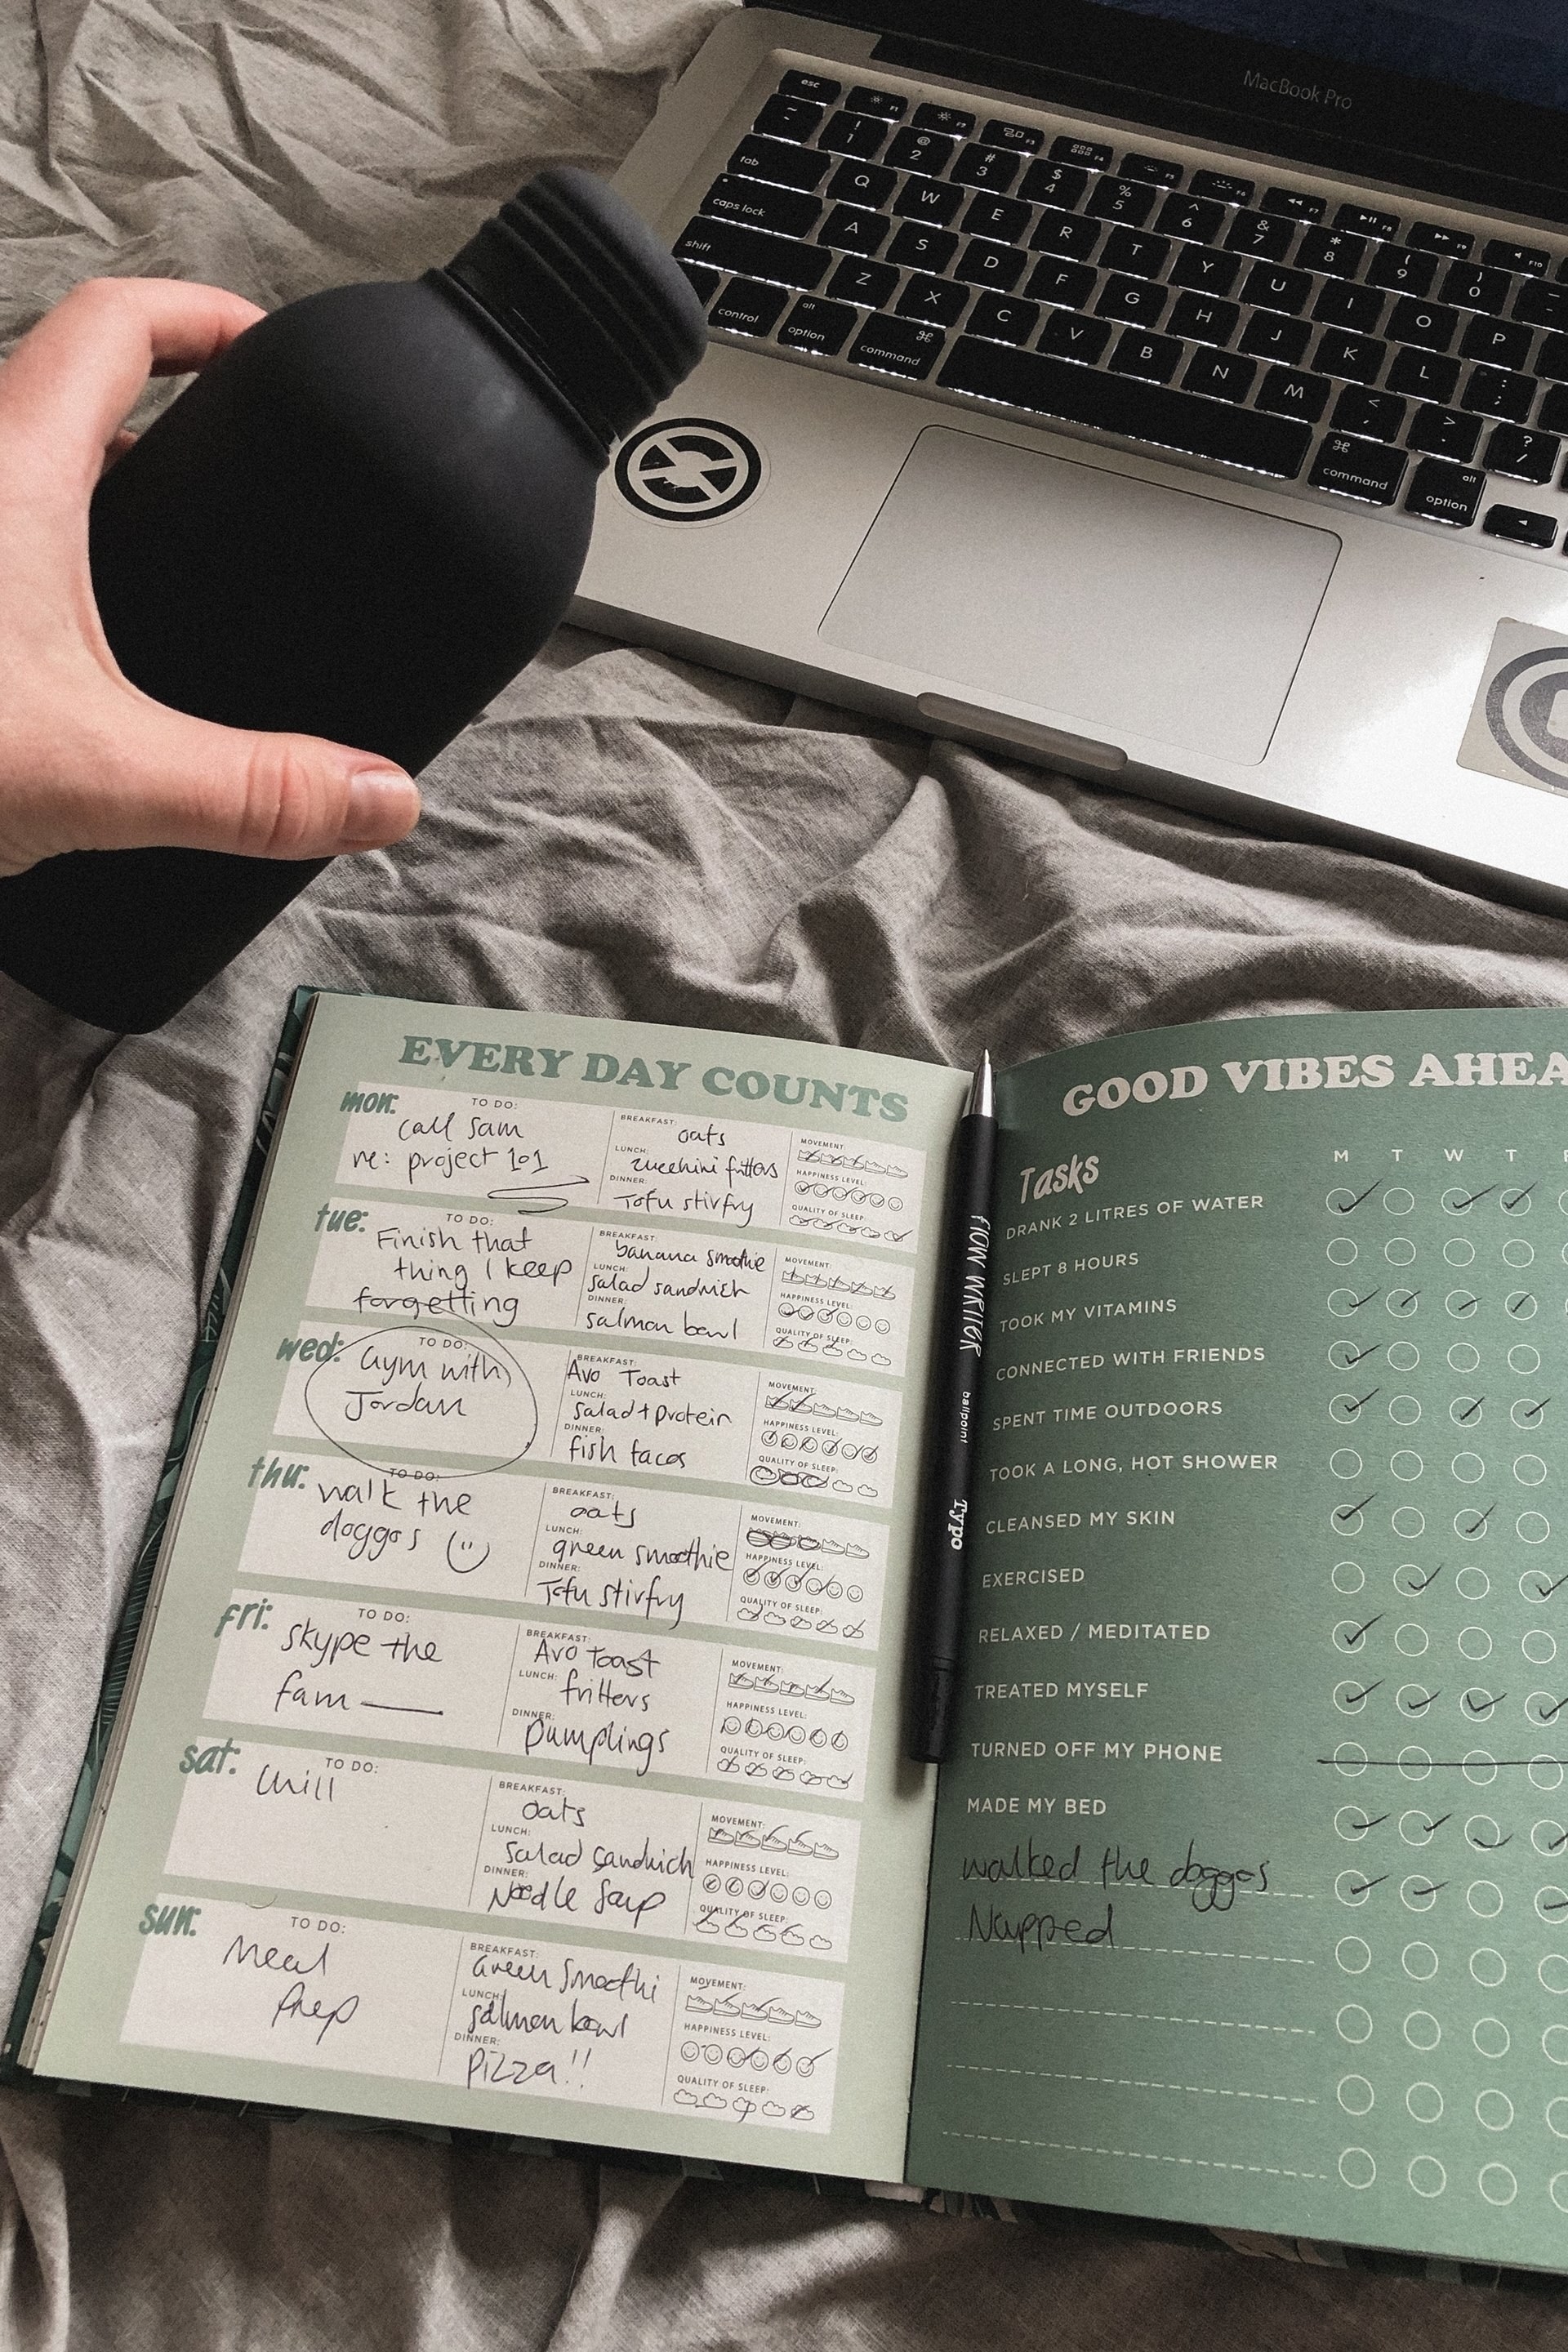 MacBook Pro
esc
F1
F2
F3
F4
F5
F6
F7
F8
F9
F10
~ ! 1 @ 2 # 3 $ 4 % 5 ^ 6 & 7 * 8 ( 9 ) 0
tab Q W E R T Y U I O P
caps lock A S D F G H J K L : ;
shift Z X C V B N M < , > . ? /
control alt option ⌘ command ⌘ command alt option
EVERY DAY COUNTS
mon:
TO DO:
call sam
re: project 101
BREAKFAST:
oats
LUNCH:
zucchini fritters
DINNER:
Tofu stirfry
MOVEMENT:
HAPPINESS LEVEL:
QUALITY OF SLEEP:
tue:
TO DO:
Finish that
thing I keep
forgetting
BREAKFAST:
banana smoothie
LUNCH:
salad sandwich
DINNER:
salmon bowl
MOVEMENT:
HAPPINESS LEVEL:
QUALITY OF SLEEP:
wed:
TO DO:
Gym with
Jordan
BREAKFAST:
Avo Toast
LUNCH:
salad + protein
DINNER:
fish tacos
MOVEMENT:
HAPPINESS LEVEL:
QUALITY OF SLEEP:
thu:
TO DO:
walk the
doggos
BREAKFAST:
oats
LUNCH:
green smoothie
DINNER:
Tofu stirfry
MOVEMENT:
HAPPINESS LEVEL:
QUALITY OF SLEEP:
fri:
TO DO:
skype the
fam
BREAKFAST:
Avo toast
LUNCH:
fritters
DINNER:
Dumplings
MOVEMENT:
HAPPINESS LEVEL:
QUALITY OF SLEEP:
sat:
TO DO:
Chill
BREAKFAST:
oats
LUNCH:
salad sandwich
DINNER:
Noodle Soup
MOVEMENT:
HAPPINESS LEVEL:
QUALITY OF SLEEP:
sun:
TO DO:
Meal
Prep
BREAKFAST:
Green Smoothi
LUNCH:
salmon bowl
DINNER:
Pizza!!
MOVEMENT:
HAPPINESS LEVEL:
QUALITY OF SLEEP:
FLOW WRITER ballpoint Typo
GOOD VIBES AHEA
Tasks M T W T F
DRANK 2 LITRES OF WATER
SLEPT 8 HOURS
TOOK MY VITAMINS
CONNECTED WITH FRIENDS
SPENT TIME OUTDOORS
TOOK A LONG, HOT SHOWER
CLEANSED MY SKIN
EXERCISED
RELAXED / MEDITATED
TREATED MYSELF
TURNED OFF MY PHONE
MADE MY BED
walked the doggos
Napped